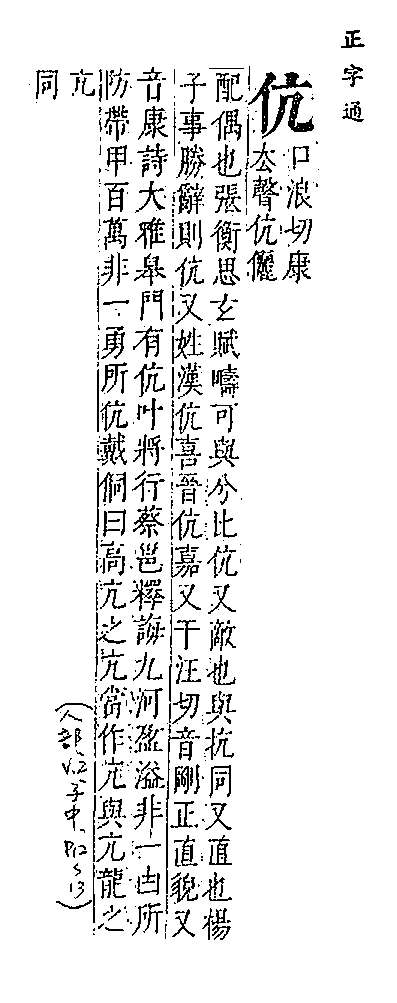 正字通
伉
口浪切康
去聲伉儷
配偶也張衡思玄賦疇可與兮比伉又敵也與抗同又直也楊
子事勝辭則伉又姓漢伉喜晉伉嘉又干汪切音剛正直貌又
音康詩大雅皋門有伉叶將行蔡邕釋誨九河盈溢非一甴所
防帶甲百萬非一勇所伉戴侗曰高亢之亢當作亢與亢龍之
亢同
(人部、子中、P12、13)